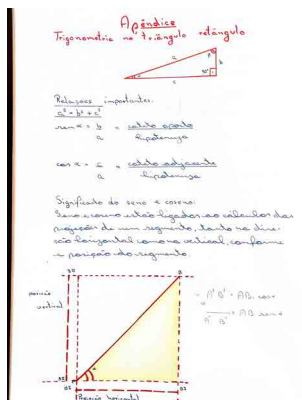 Apêndice
Trigonometria no triângulo retângulo
a
b
c
90°
Relações importantes:
a² = b² + c²
sen α = b = cateto oposto
a hipotenusa
cos α = c = cateto adjacente
a hipotenusa
Significado do seno e coseno:
Seno e coseno estão ligados ao cálculos das
projeções de um segmento, tanto na dire-
ção horizontal como na vertical, conforme
a posição do segmento.
posição
vertical
A'B' = AB. cos α
AB sen α
Posição horizontal